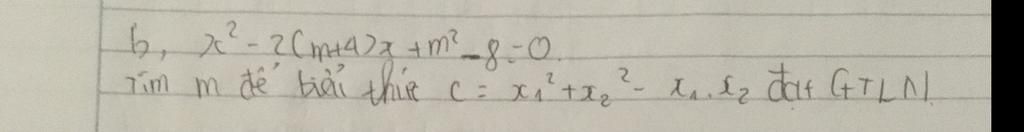 b, x² - 2(m+4)x + m² - 8 = 0.
Tìm m để biểu thức C = x₁² + x₂² - x₁.x₂ đạt GTLN.